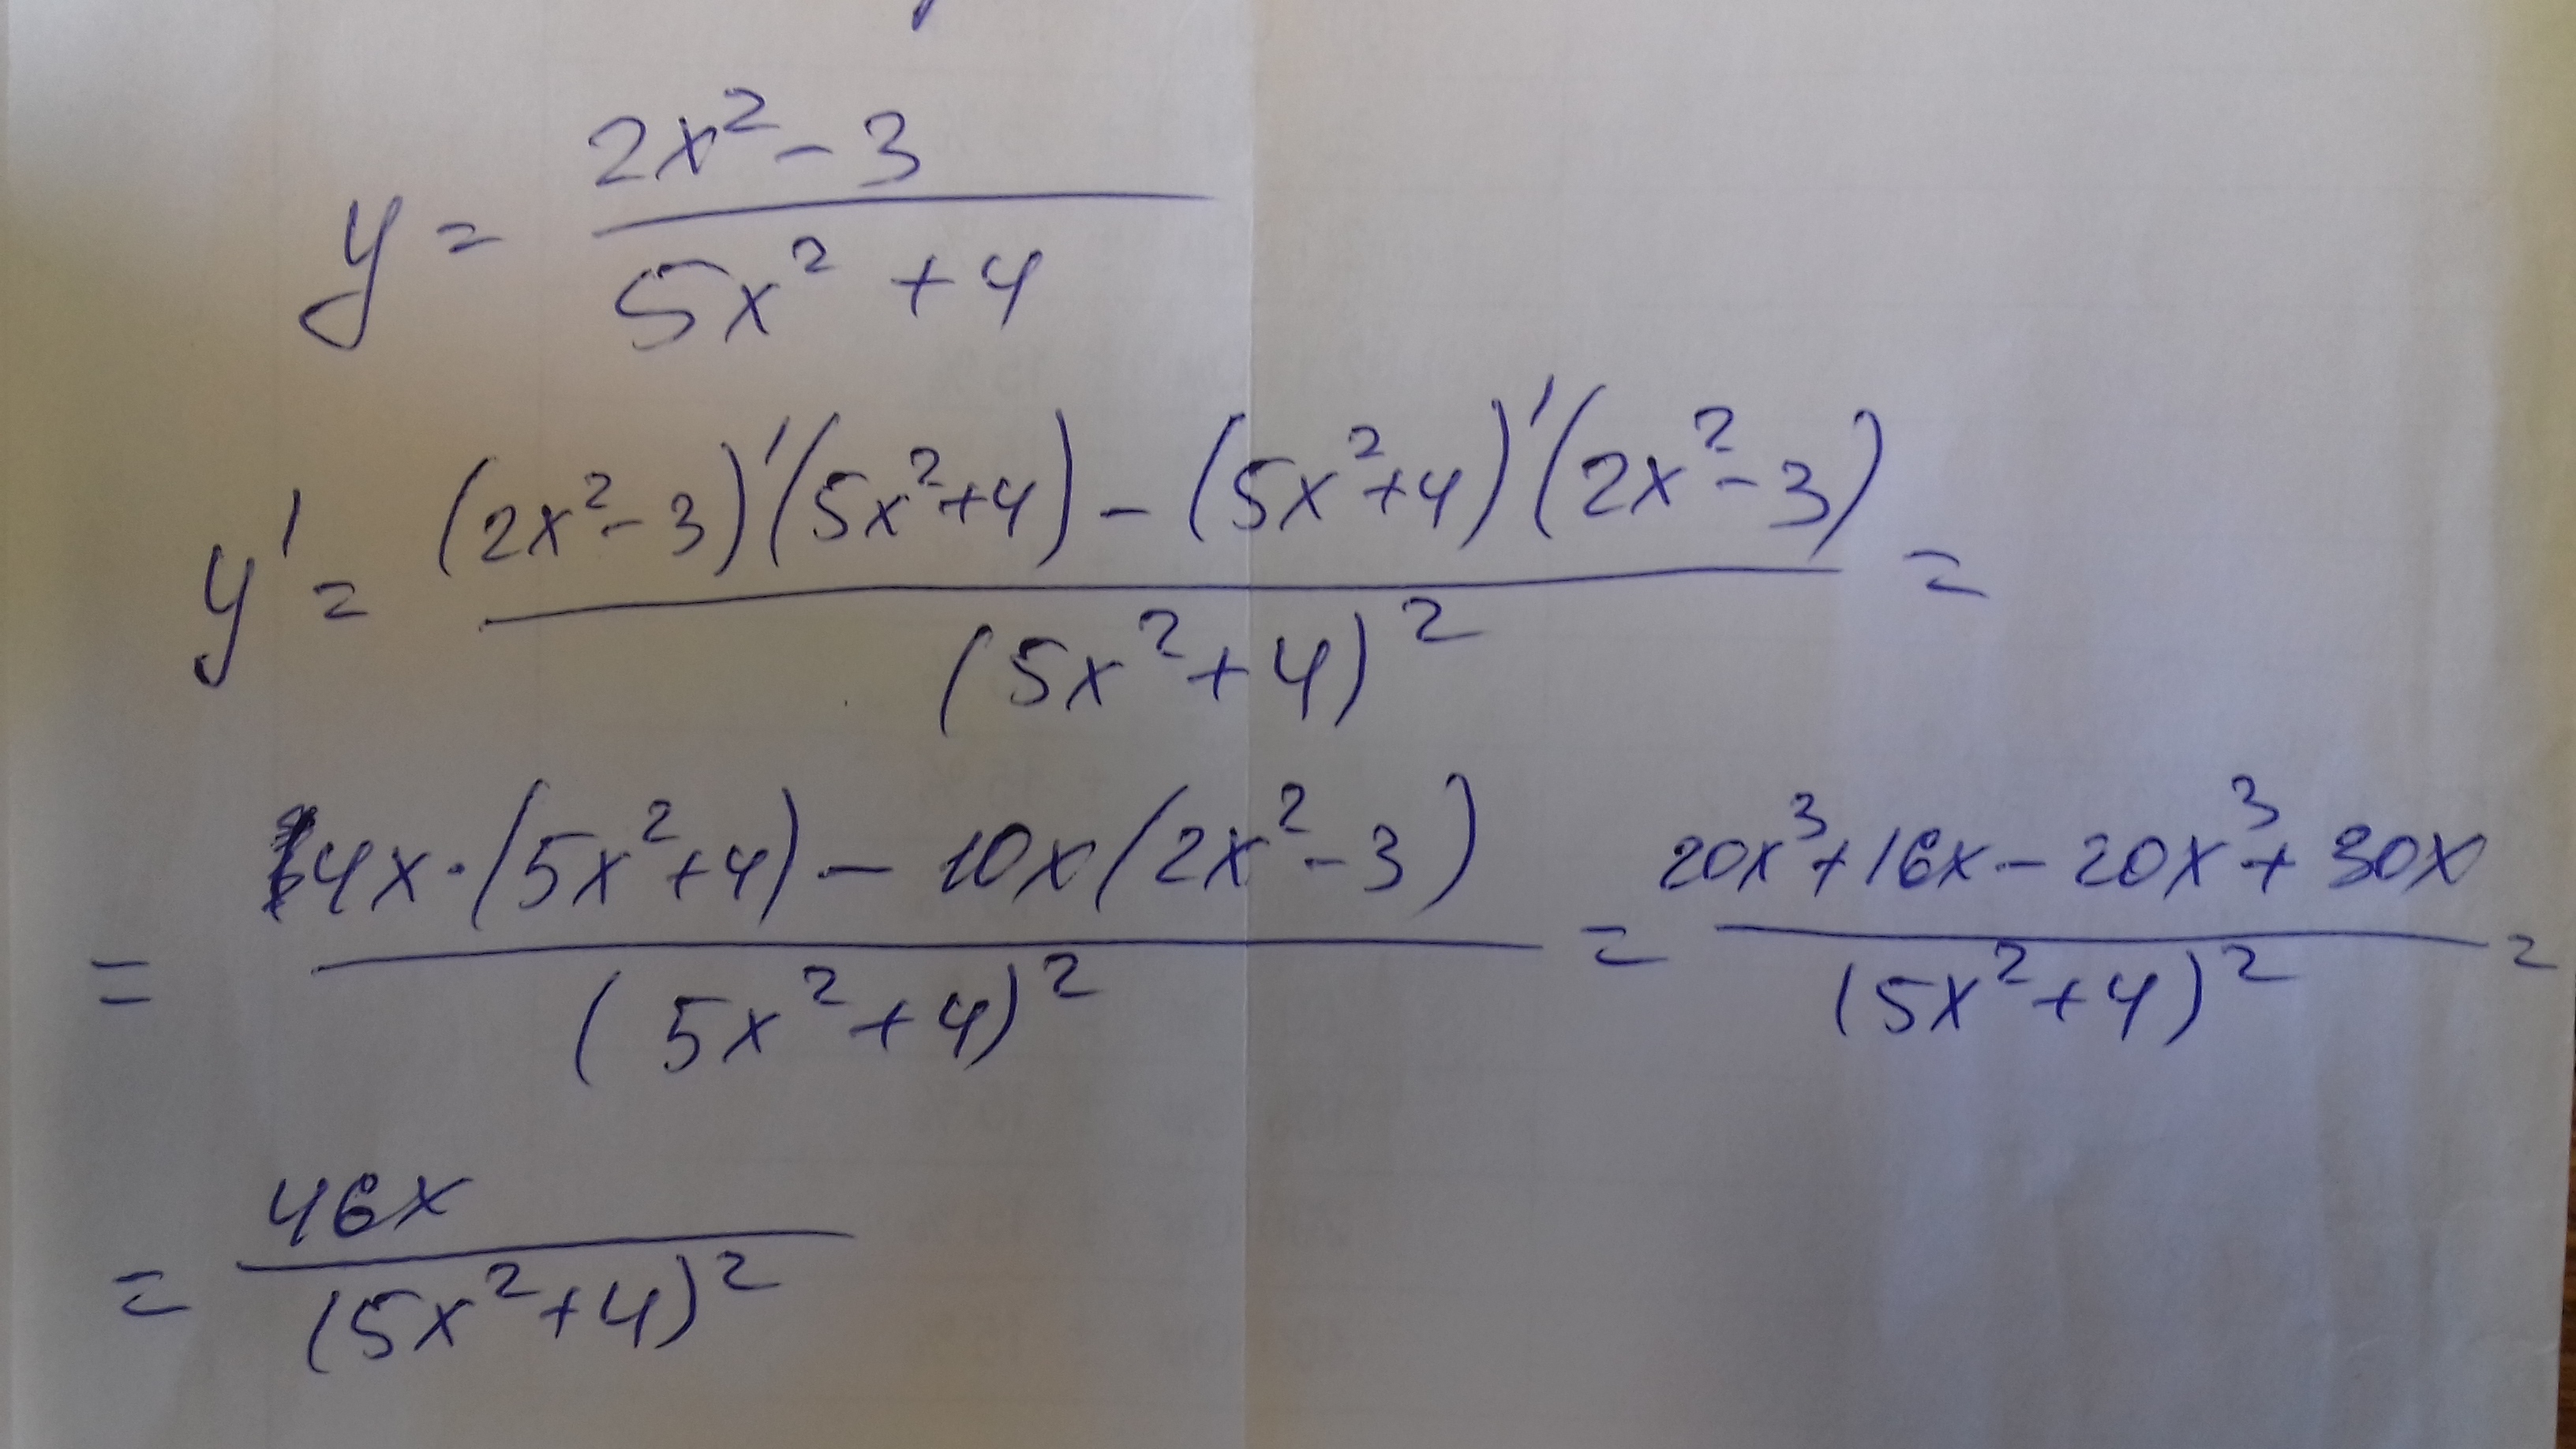 y = (2x² - 3) / (5x² + 4)
y' = ((2x² - 3)'(5x² + 4) - (5x² + 4)'(2x² - 3)) / (5x² + 4)² =
= (4x·(5x² + 4) - 10x(2x² - 3)) / (5x² + 4)² = (20x³ + 16x - 20x³ + 30x) / (5x² + 4)² =
= 46x / (5x² + 4)²